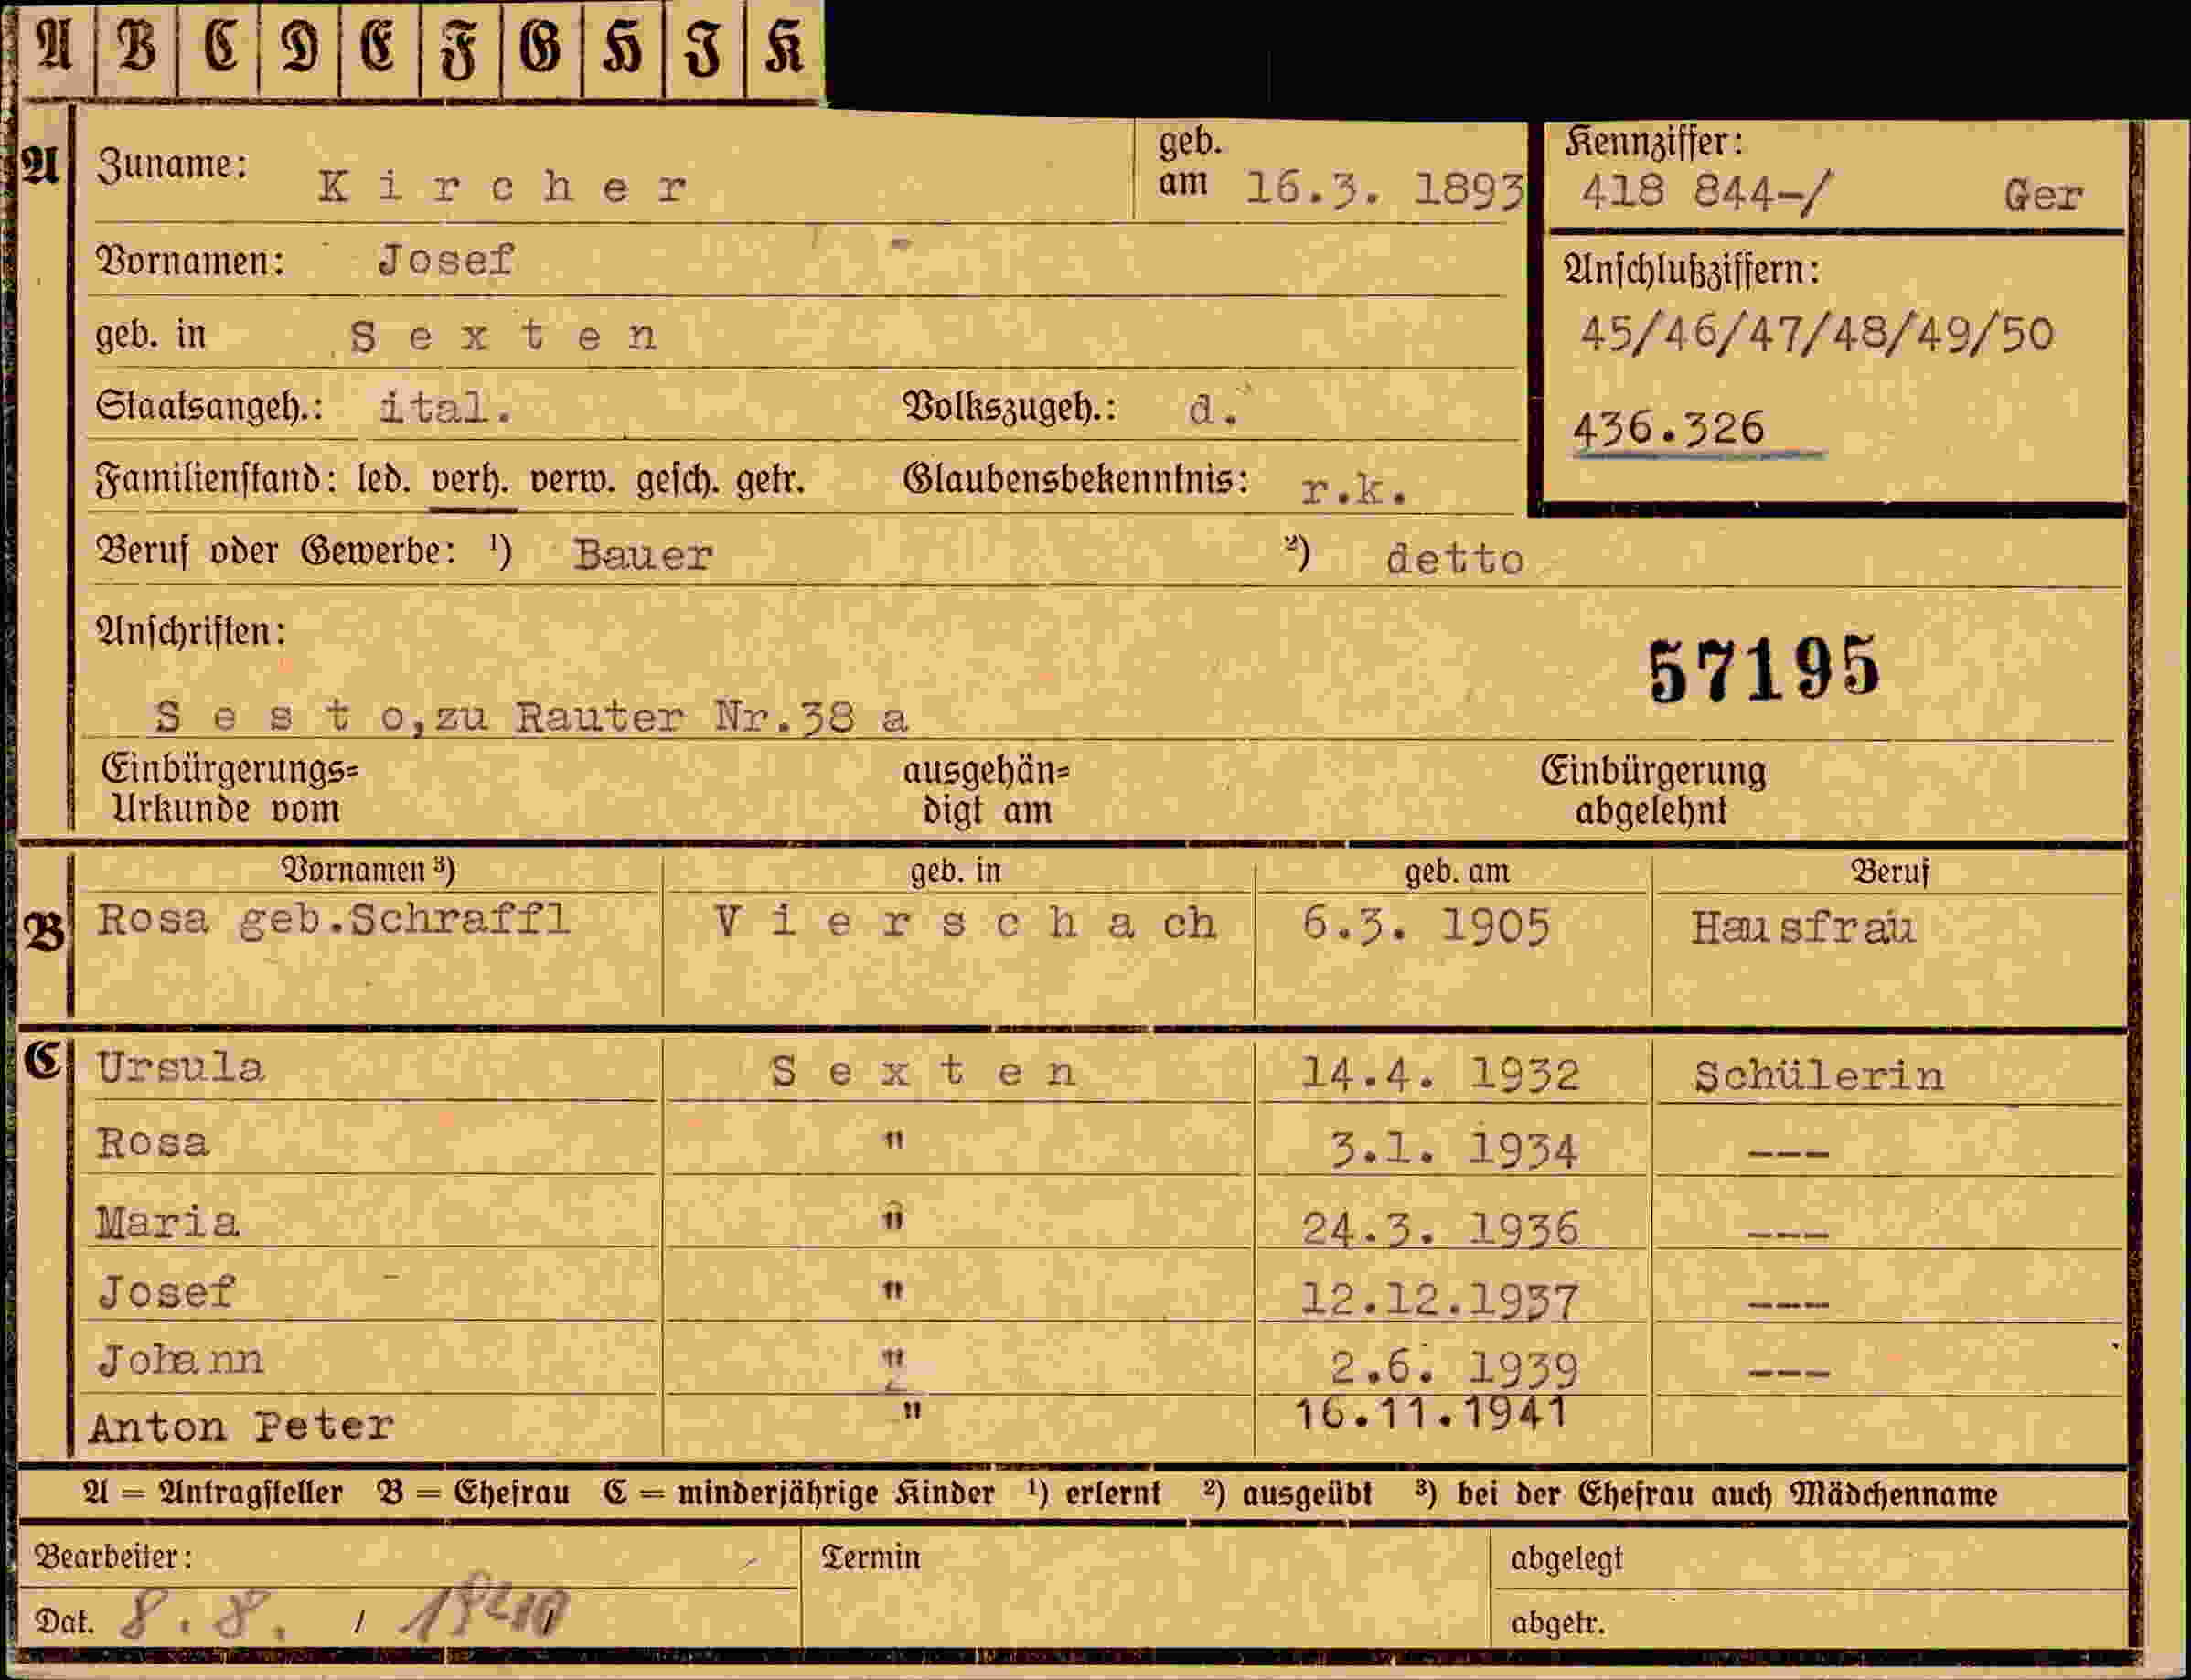 A B C D E F G H I K
A Zuname: Kircher geb. am 16.3. 1893 Kennziffer: 418 844-/ Ger
Vornamen: Josef Anschlußziffern:
geb. in Sexten 45/46/47/48/49/50
Staatsangeh.: ital. Volkszugeh.: d. 436.326
Familienstand: led. verh. verw. gesch. getr. Glaubensbekenntnis: r.k.
Beruf oder Gewerbe: ¹) Bauer ²) detto
Anschriften:
57195
Sesto,zu Rauter Nr.38 a
Einbürgerungs= ausgehän= Einbürgerung
Urkunde vom digt am abgelehnt
Vornamen ³) geb. in geb. am Beruf
B Rosa geb.Schraffl Vierschach 6.3. 1905 Hausfrau
C Ursula Sexten 14.4. 1932 Schülerin
Rosa " 3.1. 1934 ---
Maria " 24.3. 1936 ---
Josef " 12.12.1937 ---
Johann " 2.6. 1939 ---
Anton Peter " 16.11.1941
A = Antragsteller B = Ehefrau C = minderjährige Kinder ¹) erlernt ²) ausgeübt ³) bei der Ehefrau auch Mädchenname
Bearbeiter: Termin abgelegt
Dat. 8.8. / 1940 abgetr.